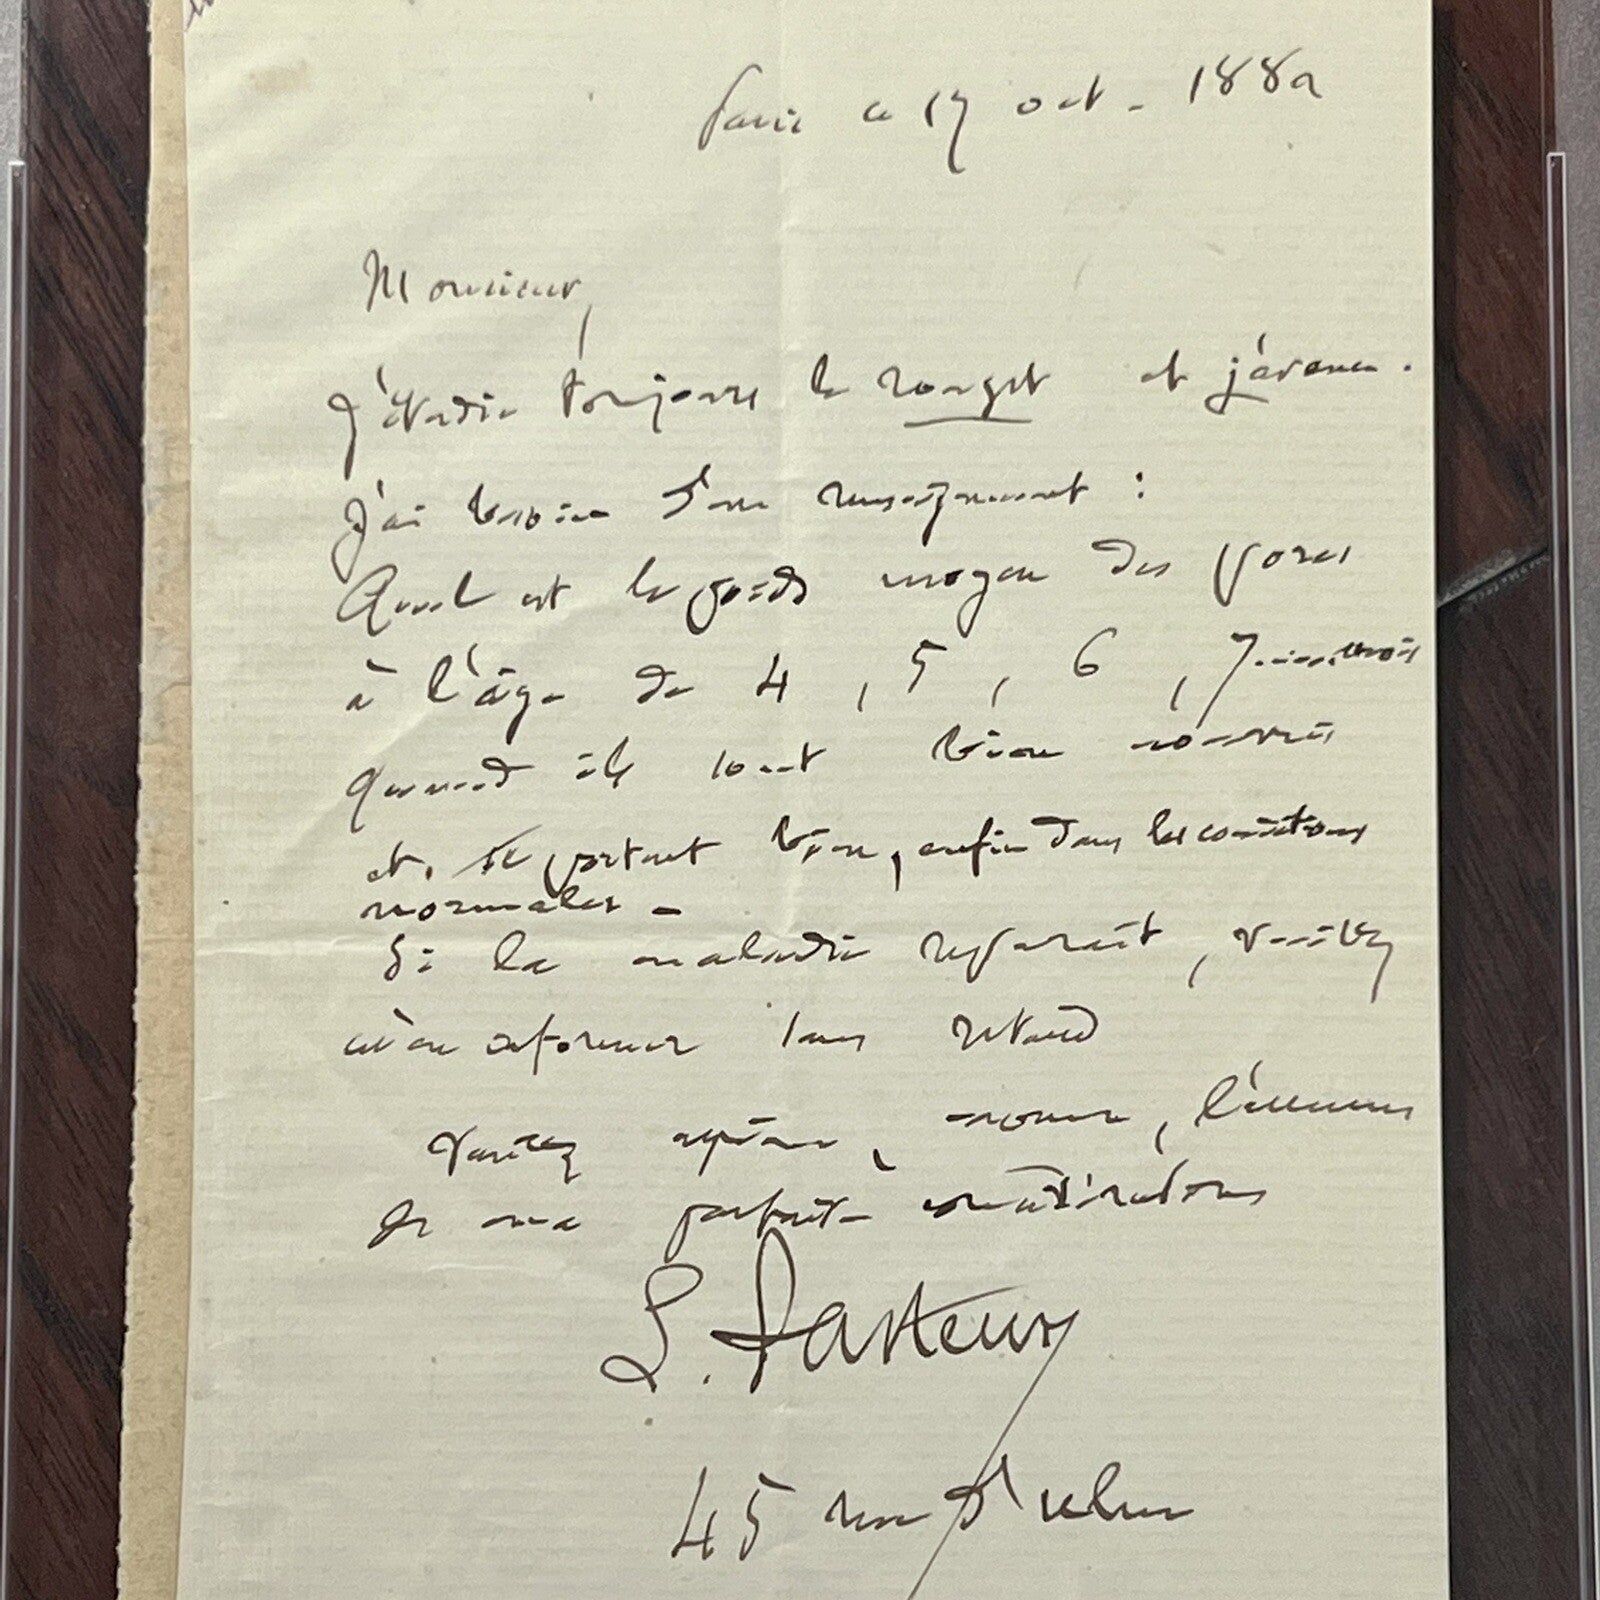 Paris ce 17 oct. 1882
Monsieur,
J'étudie toujours le rouget et j'avance.
J'ai besoin d'un renseignement :
Quel est le poids moyen des porcs
à l'âge de 4, 5, 6, 7 mois
quand ils sont bien nourris
et se portent bien, enfin dans les conditions
normales -
Si la maladie reparaît, veuillez
m'en informer sans retard
Veuillez agréer, monsieur, l'assurance
de ma parfaite considération
L. Pasteur
45 rue d'ulm